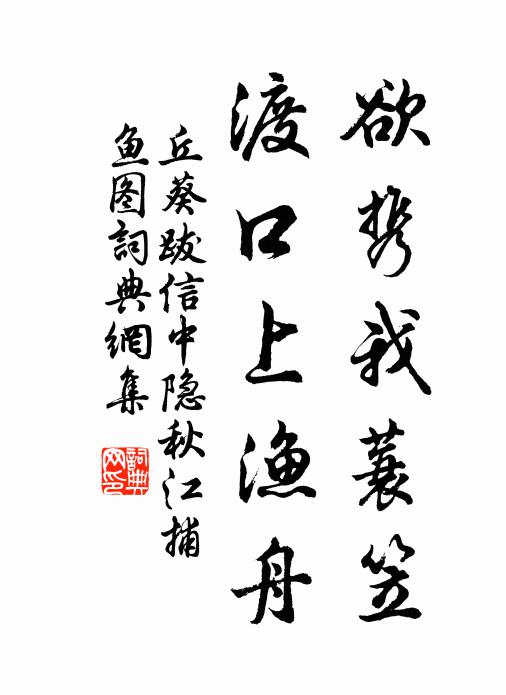 欲携我蓑笠
渡口上渔舟
丘葵跋信中隐秋江捕
鱼图詞典網集
詞典网印